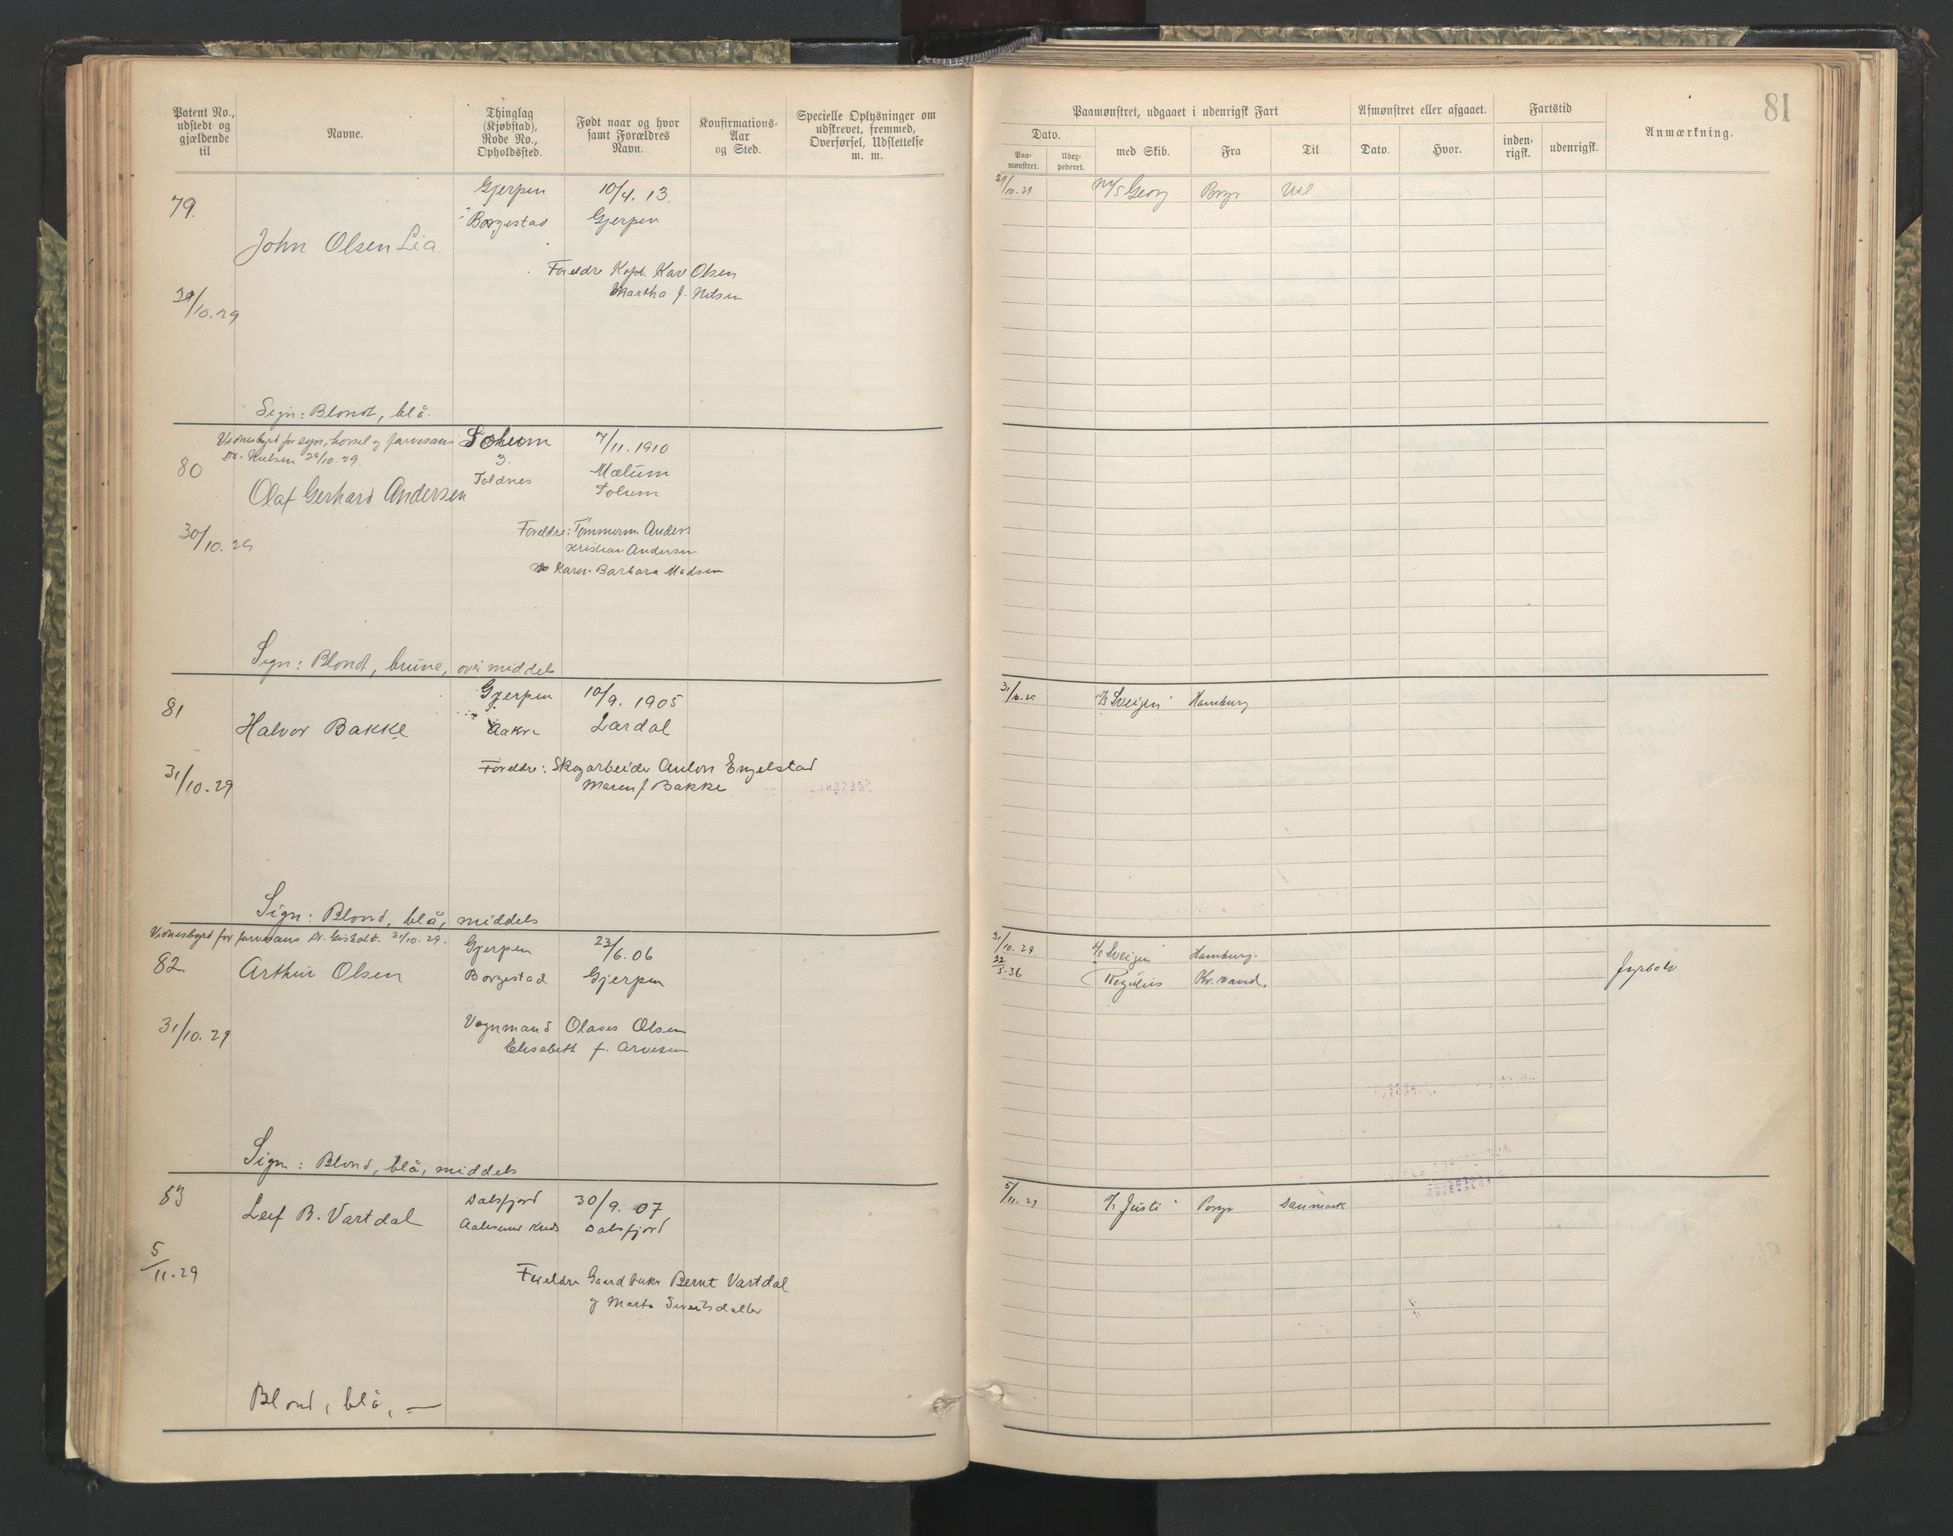 Patent No., udstedt og gjældende til
Navne.
Thinglag (Kjøbstad), Rode No., Opholdssted.
Født naar og hvor samt Forældres Navn.
Konfirmations-Aar og Sted.
Specielle Oplysninger om udskrevet, fremmed, Overførsel, Udslettelse m. m.
79.
Gjerpen 10/4. 13.
Borgestad Gjerpen
John Olsen Lia.
Foreldre Kapt. Karl Olsen
Martha f. Nilsen
29/10.29
Sign: Blond, blå.
Vidnesbyrd for syn, hørsel og farvesans
Dr. Nielsen 29/10.29.
80
Solum 7/11. 1910
3.
Toldnes Mælum
Solum
Olaf Gerhard Andersen
30/10.29
Foreldre: Tømmerm. Anders
Kristian Andersen
og Karen Barbara Madsen
Sign: Blond, brune, over middels
81
Gjerpen 10/9. 1905
Halvor Bakke
Aakre Lardal
Foreldre: Skogarbeider Anton Engelstad
Maren f. Bakke
31/10.29
Sign: Blond, blå, middels
Vidnesbyrd for farvesans Dr. 31/10.29.
82
Gjerpen 23/6. 06
Arthur Olsen
Borgestad Gjerpen
31/10.29
Vognmand Olaves Olsen
Elisabeth f. Arvesen
Sign: Blond, blå, middels
83
Dalsfjord 30/9. 07
Leif B. Vartdal
Aalesund Dalsfjord
5/11.29
Foreldre Gaardbruker Bernt Vartdal
og Marta Sivertsdatter
Blond, blå, —
81
Paamønstret, udgaaet i udenrigsk Fart
Dato.
Paamønstret.
Udexpederet.
med Skib.
Fra
Til
Afmønstret eller afgaaet.
Dato.
Hvor.
Fartstid
indenrigsk.
udenrigsk.
Anmærkning.
29/10.29 M/S Georg Brgr Udl
31/10.29 S/S Sveigen Hamburg
31/10.29 S/S Sveigen Hamburg.
22/5.36 Regulus Kr.sand. fyrbøt
5/11.29 S/S Justi Porsgr Danmark